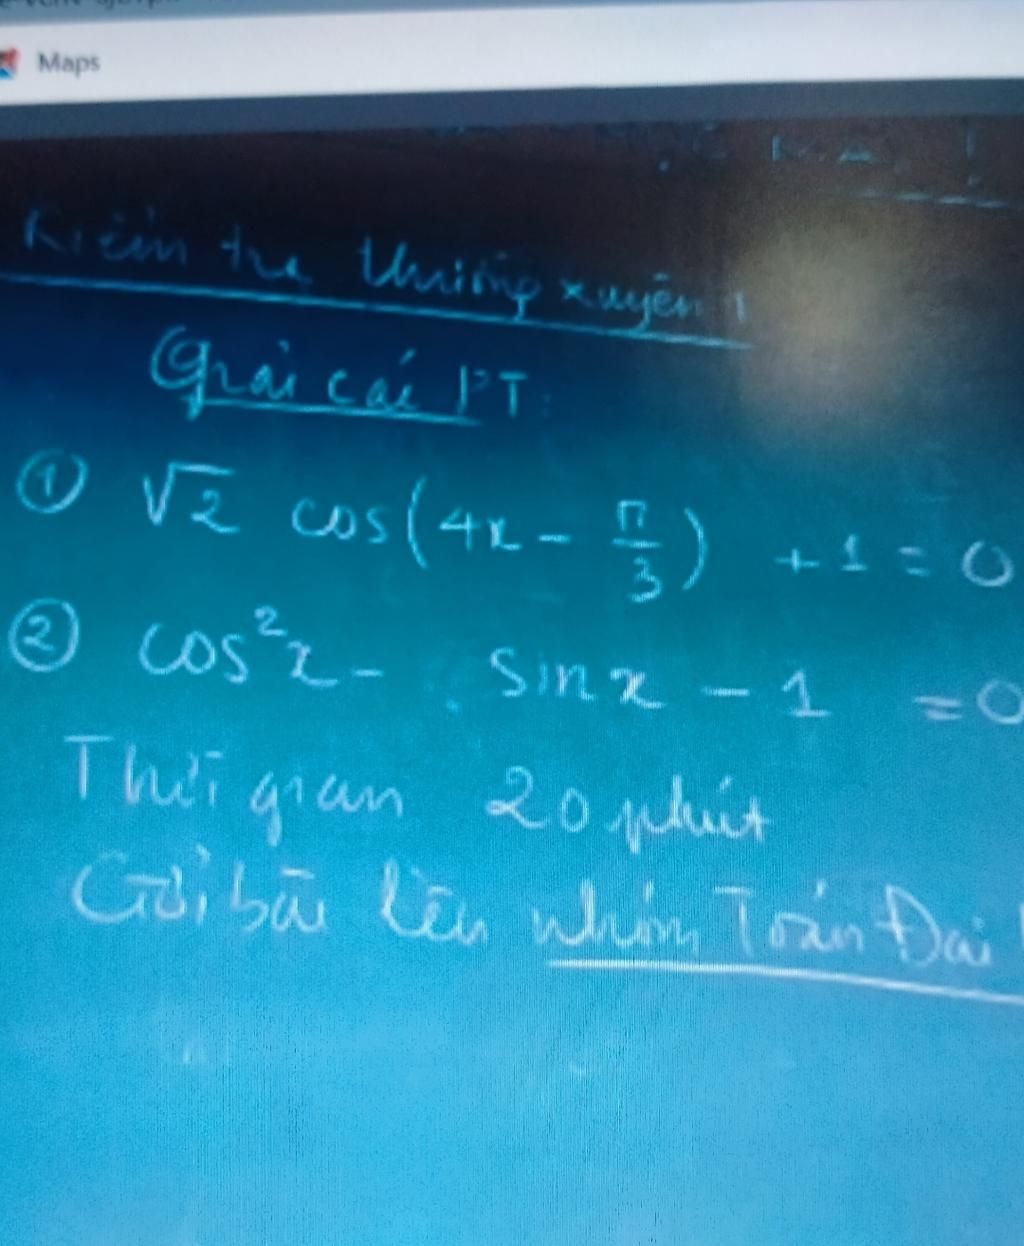 Maps
Kiểm tra thường xuyên 1
Giải các PT:
① √2 cos(4x - π/3) + 1 = 0
② cos²x - sinx - 1 = 0
Thời gian 20 phút
Gửi bài lên nhóm Toán Đại